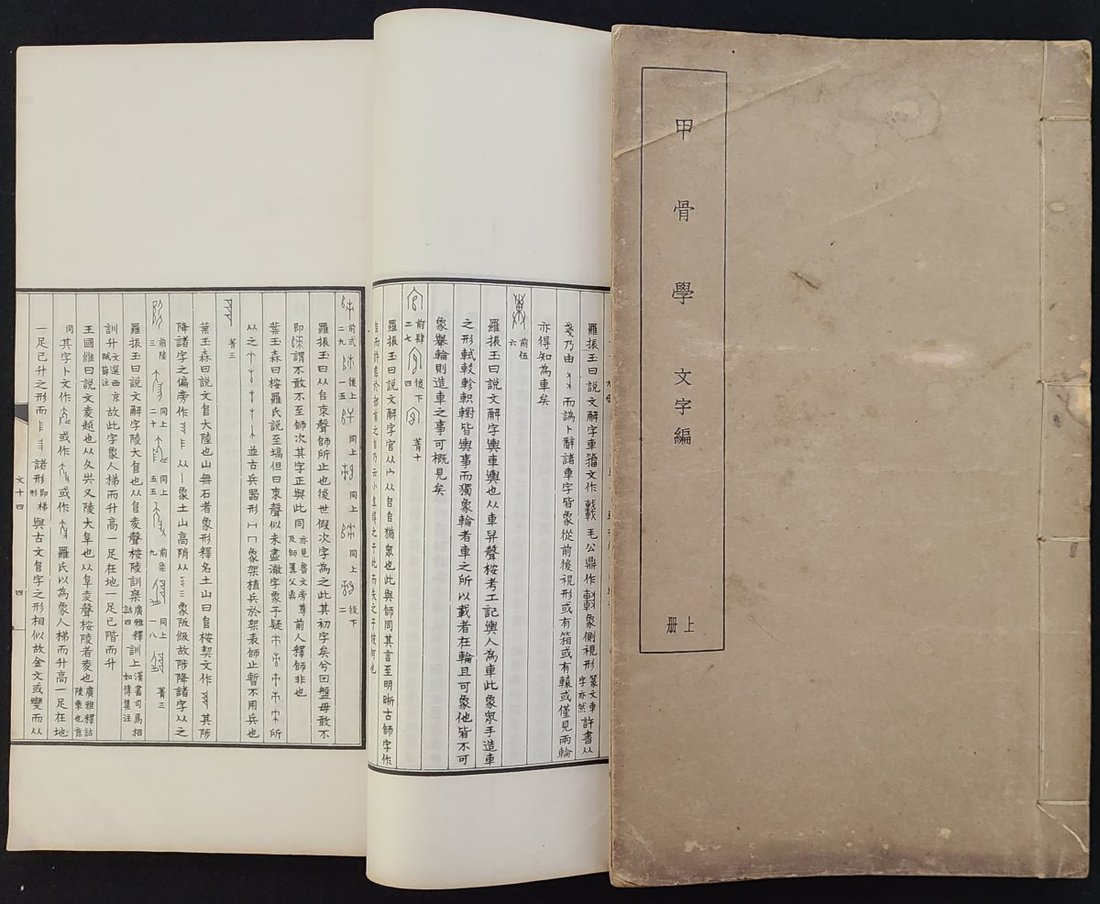 甲骨學 文字編
上册
羅振玉曰說文解字車籀文作毛公鼎作象側視形篆文車字亦然許書从
戔乃由而譌卜辭諸車字皆象從前後視形或有箱或有轅或僅見兩輪
亦得知為車矣
前伍
六
羅振玉曰說文解字輿車輿也从車舁聲桉考工記輿人為車此象眾手造車
之形軾較軫軹轛皆輿事而獨象輪者車之所以載者在輪且可象他皆不可
象舉輪則造車之事可概見矣
前肆 後下 菁十
二七 四
羅振玉曰說文解字官从宀从𠂤𠂤猶眾也此與師同其言至明晰古師字作
前弍 後上 同上 同上 同上 後下
二九 一五 二
羅振玉曰从𠂤朿聲師所止也後世假次字為之此其初字矣兮田盤毋敢不
即謂不敢不至師次其字正與此同亦見舊文房尊前人釋師非也
葉玉森曰桉羅氏說至塙但朿聲似未盡澈字象子疑所
以之並古兵器形象架植兵於架表師止暫不用兵也
菁三
葉玉森曰說文𠂤大陸也山無石者象形釋名土山曰𠂤桉契文作其陟
降諸字之偏旁作从象土山高陗从象阪級故陟降諸字从之
前陸 同上 同上 前柒 同上 菁三
三 二十 五五 九 一八
羅振玉曰說文解字陵大𠂤也从𠂤夌聲桉陵訓椉廣雅釋詁四訓上漢書司馬相如傳集注
訓升文選西京賦薛注故此字象人梯而升高一足在地一足已階而升
王國維曰說文夌越也从夂𡴆又陵大阜也从阜夌聲桉陵者夌也廣雅釋詁陵乘也意
同其字卜文作或作或作羅氏以為象人梯而升高一足在地
一足已升之形而諸形即梯形與古文𠂤字之形相似故金文或變而从
文十四
四